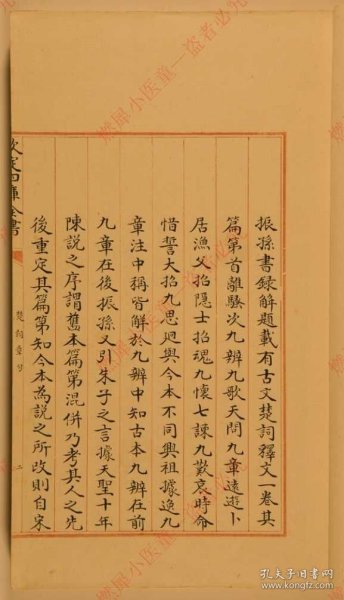 振孫書録解題載有古文楚詞釋文一卷其
篇第首離騷次九辨九歌天問九章遠遊卜
居漁父招隠士招魂九懷七諫九歎哀時命
惜誓大招九思迥與今本不同興祖據逸九
章注中稱皆解於九辨中知古本九辨在前
九章在後振孫又引朱子之言據天聖十年
陳說之序謂舊本篇第混併乃考其人之先
後重定其篇第知今本為說之所改則自宋
欽定四庫全書
楚詞章句
二
燃犀小医童—盗者必究
孔夫子旧书网